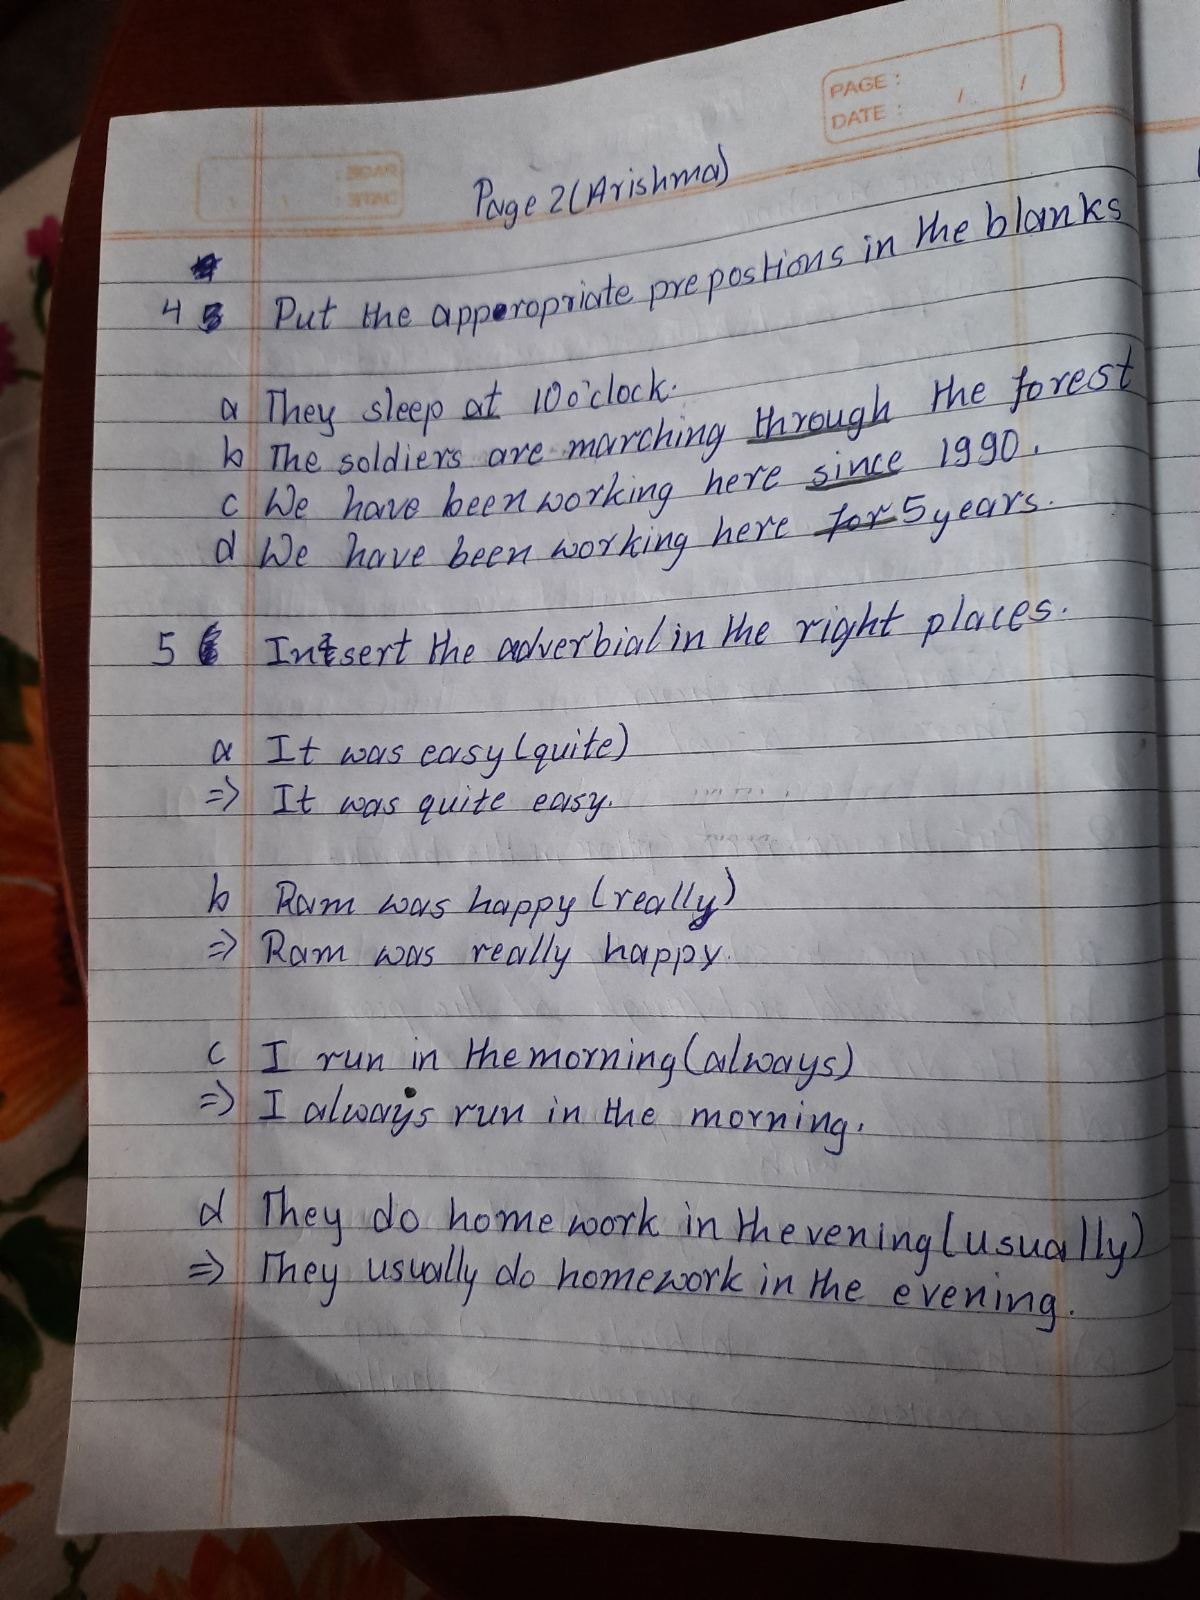 PAGE :
DATE : / /
Page 2 (Arishma)
4 Put the apporopriate prepostions in the blanks
a They sleep at 10 o'clock.
b The soldiers are marching through the forest
c We have been working here since 1990.
d We have been working here for 5 years.
5 Insert the adverbial in the right places.
a It was easy (quite)
=> It was quite easy.
b Ram was happy (really)
=> Ram was really happy.
c I run in the morning (always)
=> I always run in the morning.
d They do home work in the vening (usually)
=> They usually do homework in the evening.